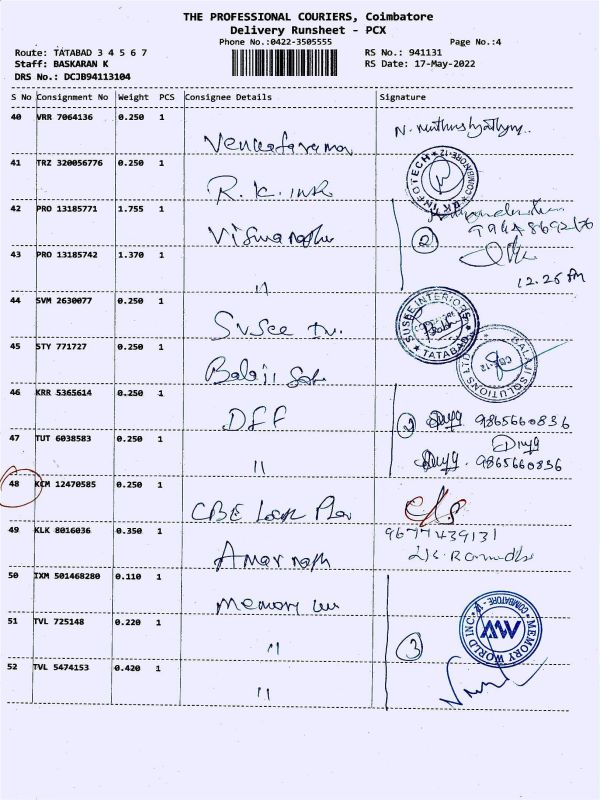 THE PROFESSIONAL COURIERS, Coimbatore
Delivery Runsheet - PCX
Phone No.:0422-3505555 Page No.:4
Route: TATABAD 3 4 5 6 7 RS No.: 941131
Staff: BASKARAN K RS Date: 17-May-2022
DRS No.: DCJB94113104
S No Consignment No Weight PCS Consignee Details Signature
40 VRR 7064136 0.250 1
41 TRZ 320056776 0.250 1
R.K. Info
RK INFOTECH COIMBATORE-12
42 PRO 13185771 1.755 1
2
43 PRO 13185742 1.370 1
"
12.25 PM
44 SVM 2630077 0.250 1
Susee In.
SUSEE INTERIORS TATABAD
45 STY 771727 0.250 1
Balaji
BALAJI SOLUTIONS LTD CBE-12
46 KRR 5365614 0.250 1
DFF
2 9865660836
47 TUT 6038583 0.250 1
"
9865660836
48 KCM 12470585 0.250 1
CBE
49 KLK 8016036 0.350 1
9677439131
Amar nath
50 IXM 501468280 0.110 1
Memory
MEMORY WORLD INC. COIMBATORE - 12
MW
51 TVL 725148 0.220 1
"
3
52 TVL 5474153 0.420 1
"